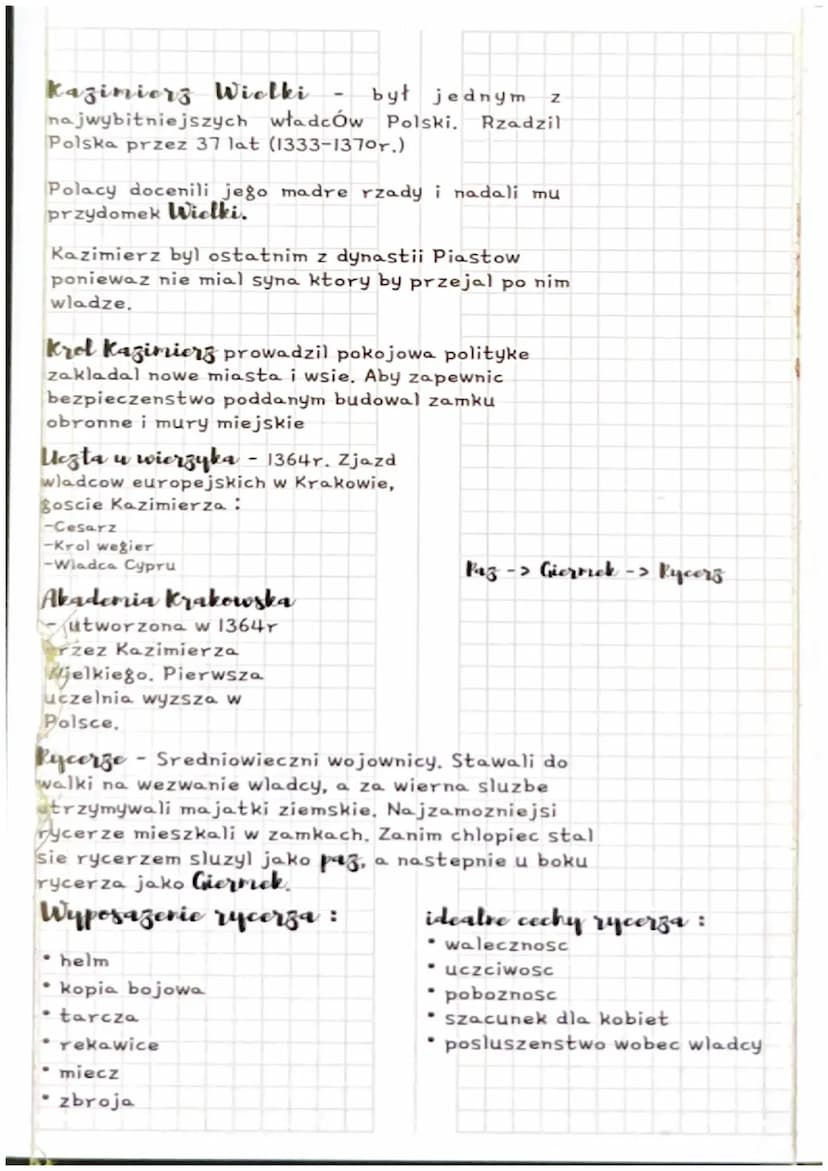 Kazimierz Wielki - był jednym z
najwybitniejszych władcÓw Polski. Rzadzil
Polska przez 37 lat (1333-1370r.)
Polacy docenili jego madre rzady i nadali mu
przydomek Wielki.
Kazimierz byl ostatnim z dynastii Piastow
poniewaz nie mial syna ktory by przejal po nim
wladze.
Krol Kazimierz prowadzil pokojowa polityke
zakladal nowe miasta i wsie. Aby zapewnic
bezpieczenstwo poddanym budowal zamku
obronne i mury miejskie
Uczta u wierzyka - 1364r. Zjazd
wladcow europejskich w Krakowie,
goscie Kazimierza :
-Cesarz
-Krol wegier
-Wladca Cypru
Paz -> Giermek -> Rycerz
Akademia Krakowska
- utworzona w 1364r
przez Kazimierza
Wielkiego. Pierwsza
uczelnia wyzsza w
Polsce.
Rycerze - Sredniowieczni wojownicy. Stawali do
walki na wezwanie wladcy, a za wierna sluzbe
otrzymywali majatki ziemskie. Najzamozniejsi
rycerze mieszkali w zamkach. Zanim chlopiec stal
sie rycerzem sluzyl jako paz, a nastepnie u boku
rycerza jako Giermek.
Wyposazenie rycerza :
• helm
• kopia bojowa
• tarcza
• rekawice
• miecz
• zbroja
idealne cechy rycerza :
• walecznosc
• uczciwosc
• poboznosc
• szacunek dla kobiet
• posluszenstwo wobec wladcy